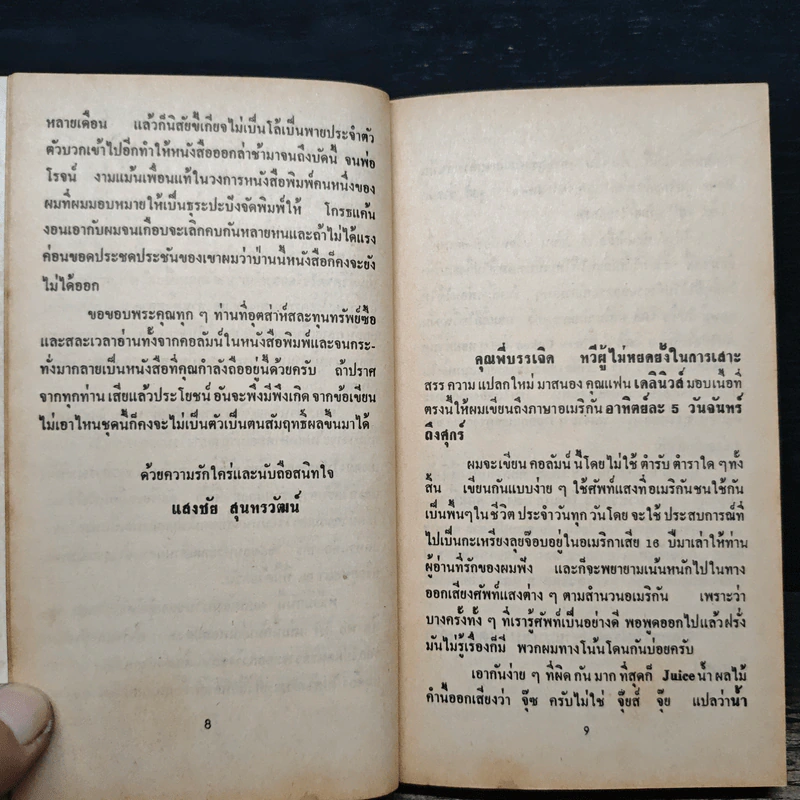 หลายเดือน แล้วก็นิสัยขี้เกียจไม่เป็นโล้เป็นพายประจำตัว
ตัวบวกเข้าไปอีกทำให้หนังสือออกล่าช้ามาจนถึงบัดนี้ จนพ่อ
โรจน์ งามแม้นเพื่อนแท้ในวงการหนังสือพิมพ์คนหนึ่งของ
ผมที่ผมมอบหมายให้เป็นธุระปะปังจัดพิมพ์ให้ โกรธแค้น
งอนเอากับผมจนเกือบจะเลิกคบกันหลายหนและถ้าไม่ได้แรง
ค่อนขอดประชดประชันของเขาผมว่าป่านนี้หนังสือก็คงจะยัง
ไม่ได้ออก
ขอขอบพระคุณทุก ๆ ท่านที่อุตส่าห์สละทุนทรัพย์ซื้อ
และสละเวลาอ่านทั้งจากคอลัมน์ในหนังสือพิมพ์และจนกระ-
ทั่งมากลายเป็นหนังสือที่คุณกำลังถืออยู่นี้ด้วยครับ ถ้าปราศ
จากทุกท่าน เสียแล้วประโยชน์ อันจะพึงมีพึงเกิด จากข้อเขียน
ไม่เอาไหนชุดนี้ก็คงจะไม่เป็นตัวเป็นตนสัมฤทธิ์ผลขึ้นมาได้
ด้วยความรักใคร่และนับถือสนิทใจ
แสงชัย สุนทรวัฒน์
8
คุณพี่บรรเจิด ทวีผู้ไม่หยุดยั้งในการเสาะ
สรร ความ แปลกใหม่ มาสนอง คุณแฟน เดลินิวส์ มอบเนื้อที่
ตรงนี้ให้ผมเขียนถึงภาษาอเมริกัน อาทิตย์ละ 5 วันจันทร์
ถึงศุกร์
ผมจะเขียน คอลัมน์ นี้โดย ไม่ใช้ ตำรับ ตำราใด ๆ ทั้ง
สิ้น เขียนกันแบบง่าย ๆ ใช้ศัพท์แสงที่อเมริกันชนใช้กัน
เป็นพื้นๆในชีวิต ประจำวันทุก วันโดย จะใช้ ประสบการณ์ที่
ไปเป็นกะเหรี่ยงลุยจ๊อบอยู่ในอเมริกาเสีย 16 ปีมาเล่าให้ท่าน
ผู้อ่านที่รักของผมฟัง และก็จะพยายามเน้นหนักไปในทาง
ออกเสียงศัพท์แสงต่าง ๆ ตามสำนวนอเมริกัน เพราะว่า
บางครั้งทั้ง ๆ ที่เรารู้ศัพท์เป็นอย่างดี พอพูดออกไปแล้วฝรั่ง
มันไม่รู้เรื่องก็มี พวกผมทางโน้นโดนกันบ่อยครับ
เอากันง่าย ๆ ที่ผิด กัน มาก ที่สุดก็ Juice น้ำ ผลไม้
คำนี้ออกเสียงว่า จุ๊ซ ครับไม่ใช่ จุ๊ยส์ จุ๊ย แปลว่าน้ำ
9